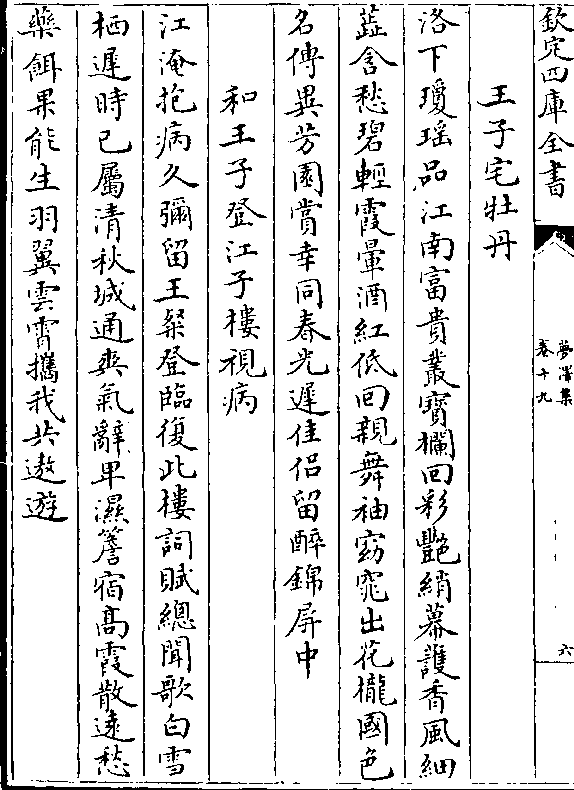 欽定四庫全書
夢澤集
卷十九
六
王子宅牡丹
洛下瓊瑤品江南富貴叢寶欄回彩艷綃幕護香風細
蕋含愁碧輕霞暈酒紅低回親舞袖窈窕出花櫳國色
名傳異芳園賞幸同春光遲佳侣留醉錦屏中
和王子登江子樓視病
江淹抱病久彌留王粲登臨復此樓詞賦總聞歌白雪
栖遲時已屬清秋城通爽氣辭卑濕簷宿高霞散遠愁
藥餌果能生羽翼雲霄攜我共遨遊